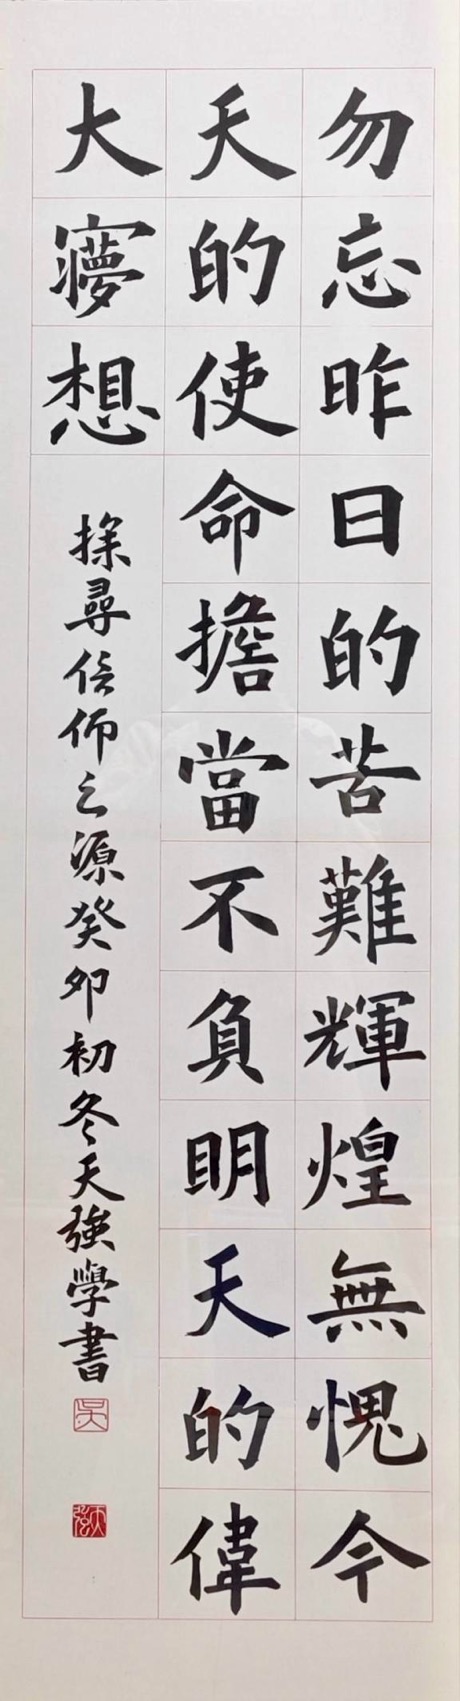 勿忘昨日的苦難輝煌無愧今
天的使命擔當不負明天的偉
大夢想
探尋信仰之源癸卯初冬天強學書
吳
天強